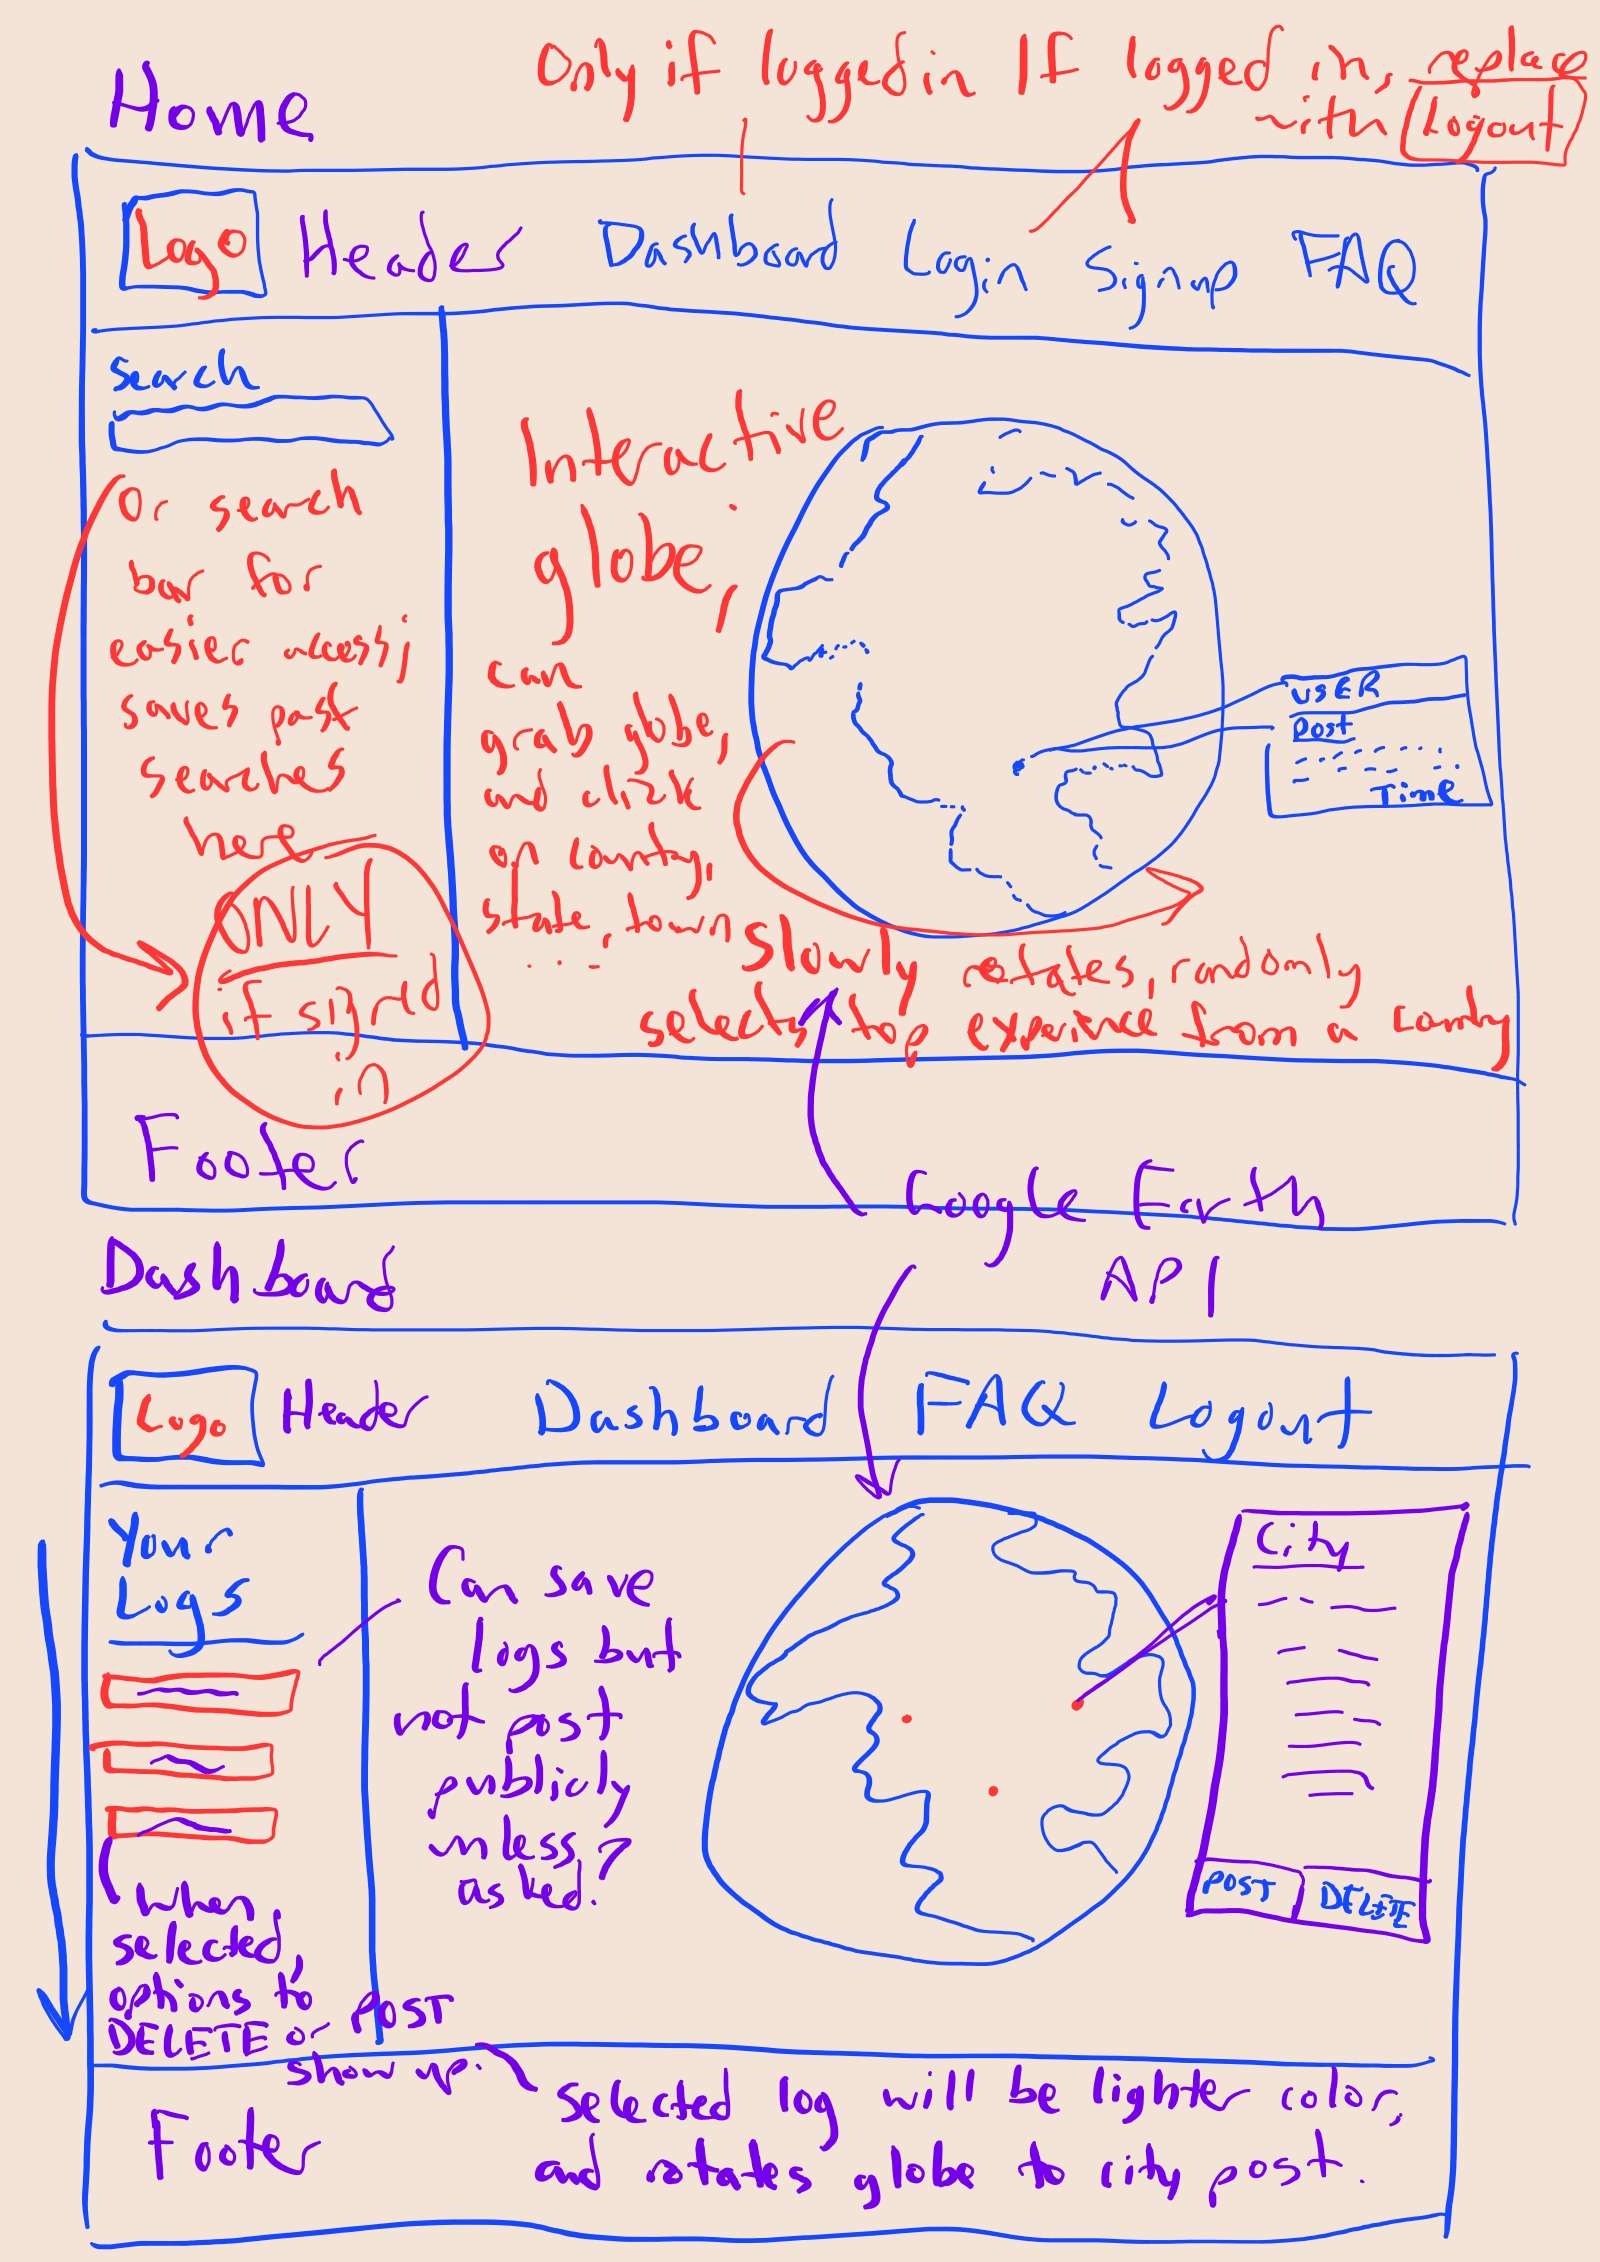 Only if logged in
If logged in, replace
with Logout
Home
Logo
Header
Dashboard
Login
Signup
FAQ
Search
Or search
bar for
easier access;
saves past
searches
here
ONLY
if signed
in
Interactive
globe,
can
grab globe,
and click
on country,
state, town
...
USER
Post
Time
Slowly rotates, randomly
selects top experience from a country
Footer
Google Earth
API
Dashboard
Logo
Header
Dashboard
FAQ
Logout
Your
Logs
Can save
logs but
not post
publicly
unless
asked.
City
POST
DELETE
When
selected,
options to
DELETE or POST
show up.
Selected log will be lighter color,
and rotates globe to city post.
Footer